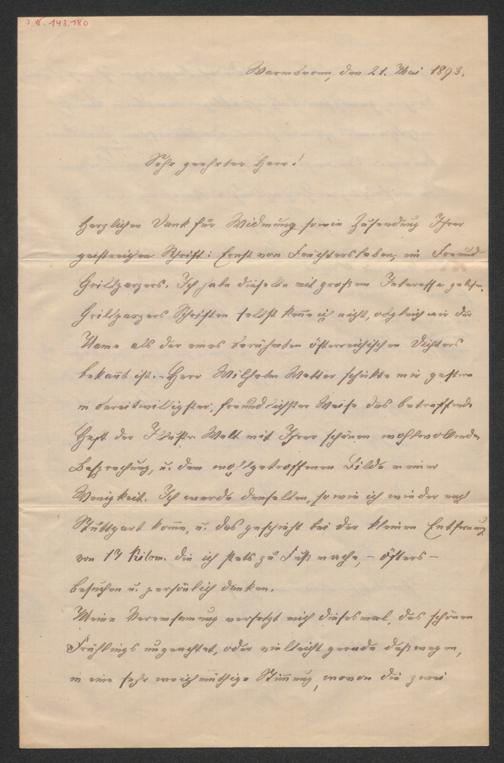 I.N. 143.180
Warmbronn, den 21. Mai 1893.
Sehr geehrter Herr!
Herzlichen Dank für Widmung sowie Zusendung Ihrer
geistreichen Schrift: Ernst von Feuchtersleben, ein Freund
Grillparzers. Ich habe dieselbe mit großem Interesse gelesen.
Grillparzers Schriften selbst kenne ich nicht, obgleich mir der
Name als der eines berühmten österreichischen Dichters
bekannt ist. – Herr Wilhelm Wetter schickte mir gestern
in bereitwilligster, freundlichster Weise das betreffende
Heft der Illustr. Welt mit Ihrer schönen wohlwollenden
Besprechung, u. dem wohlgetroffenen Bilde meiner
Wenigkeit. Ich werde denselben, sowie ich wieder nach
Stuttgart komme, u. das geschieht bei der kleinen Entfernung
von 17 Kilom. die ich stets zu Fuß mache, – öfters –
besuchen u. persönlich danken.
Meine Vereinsamung versetzt mich diesesmal, des schönen
Frühlings ungeachtet, oder vielleicht gerade deßwegen,
in eine sehr weichmüthige Stimmung, wovon die zwei